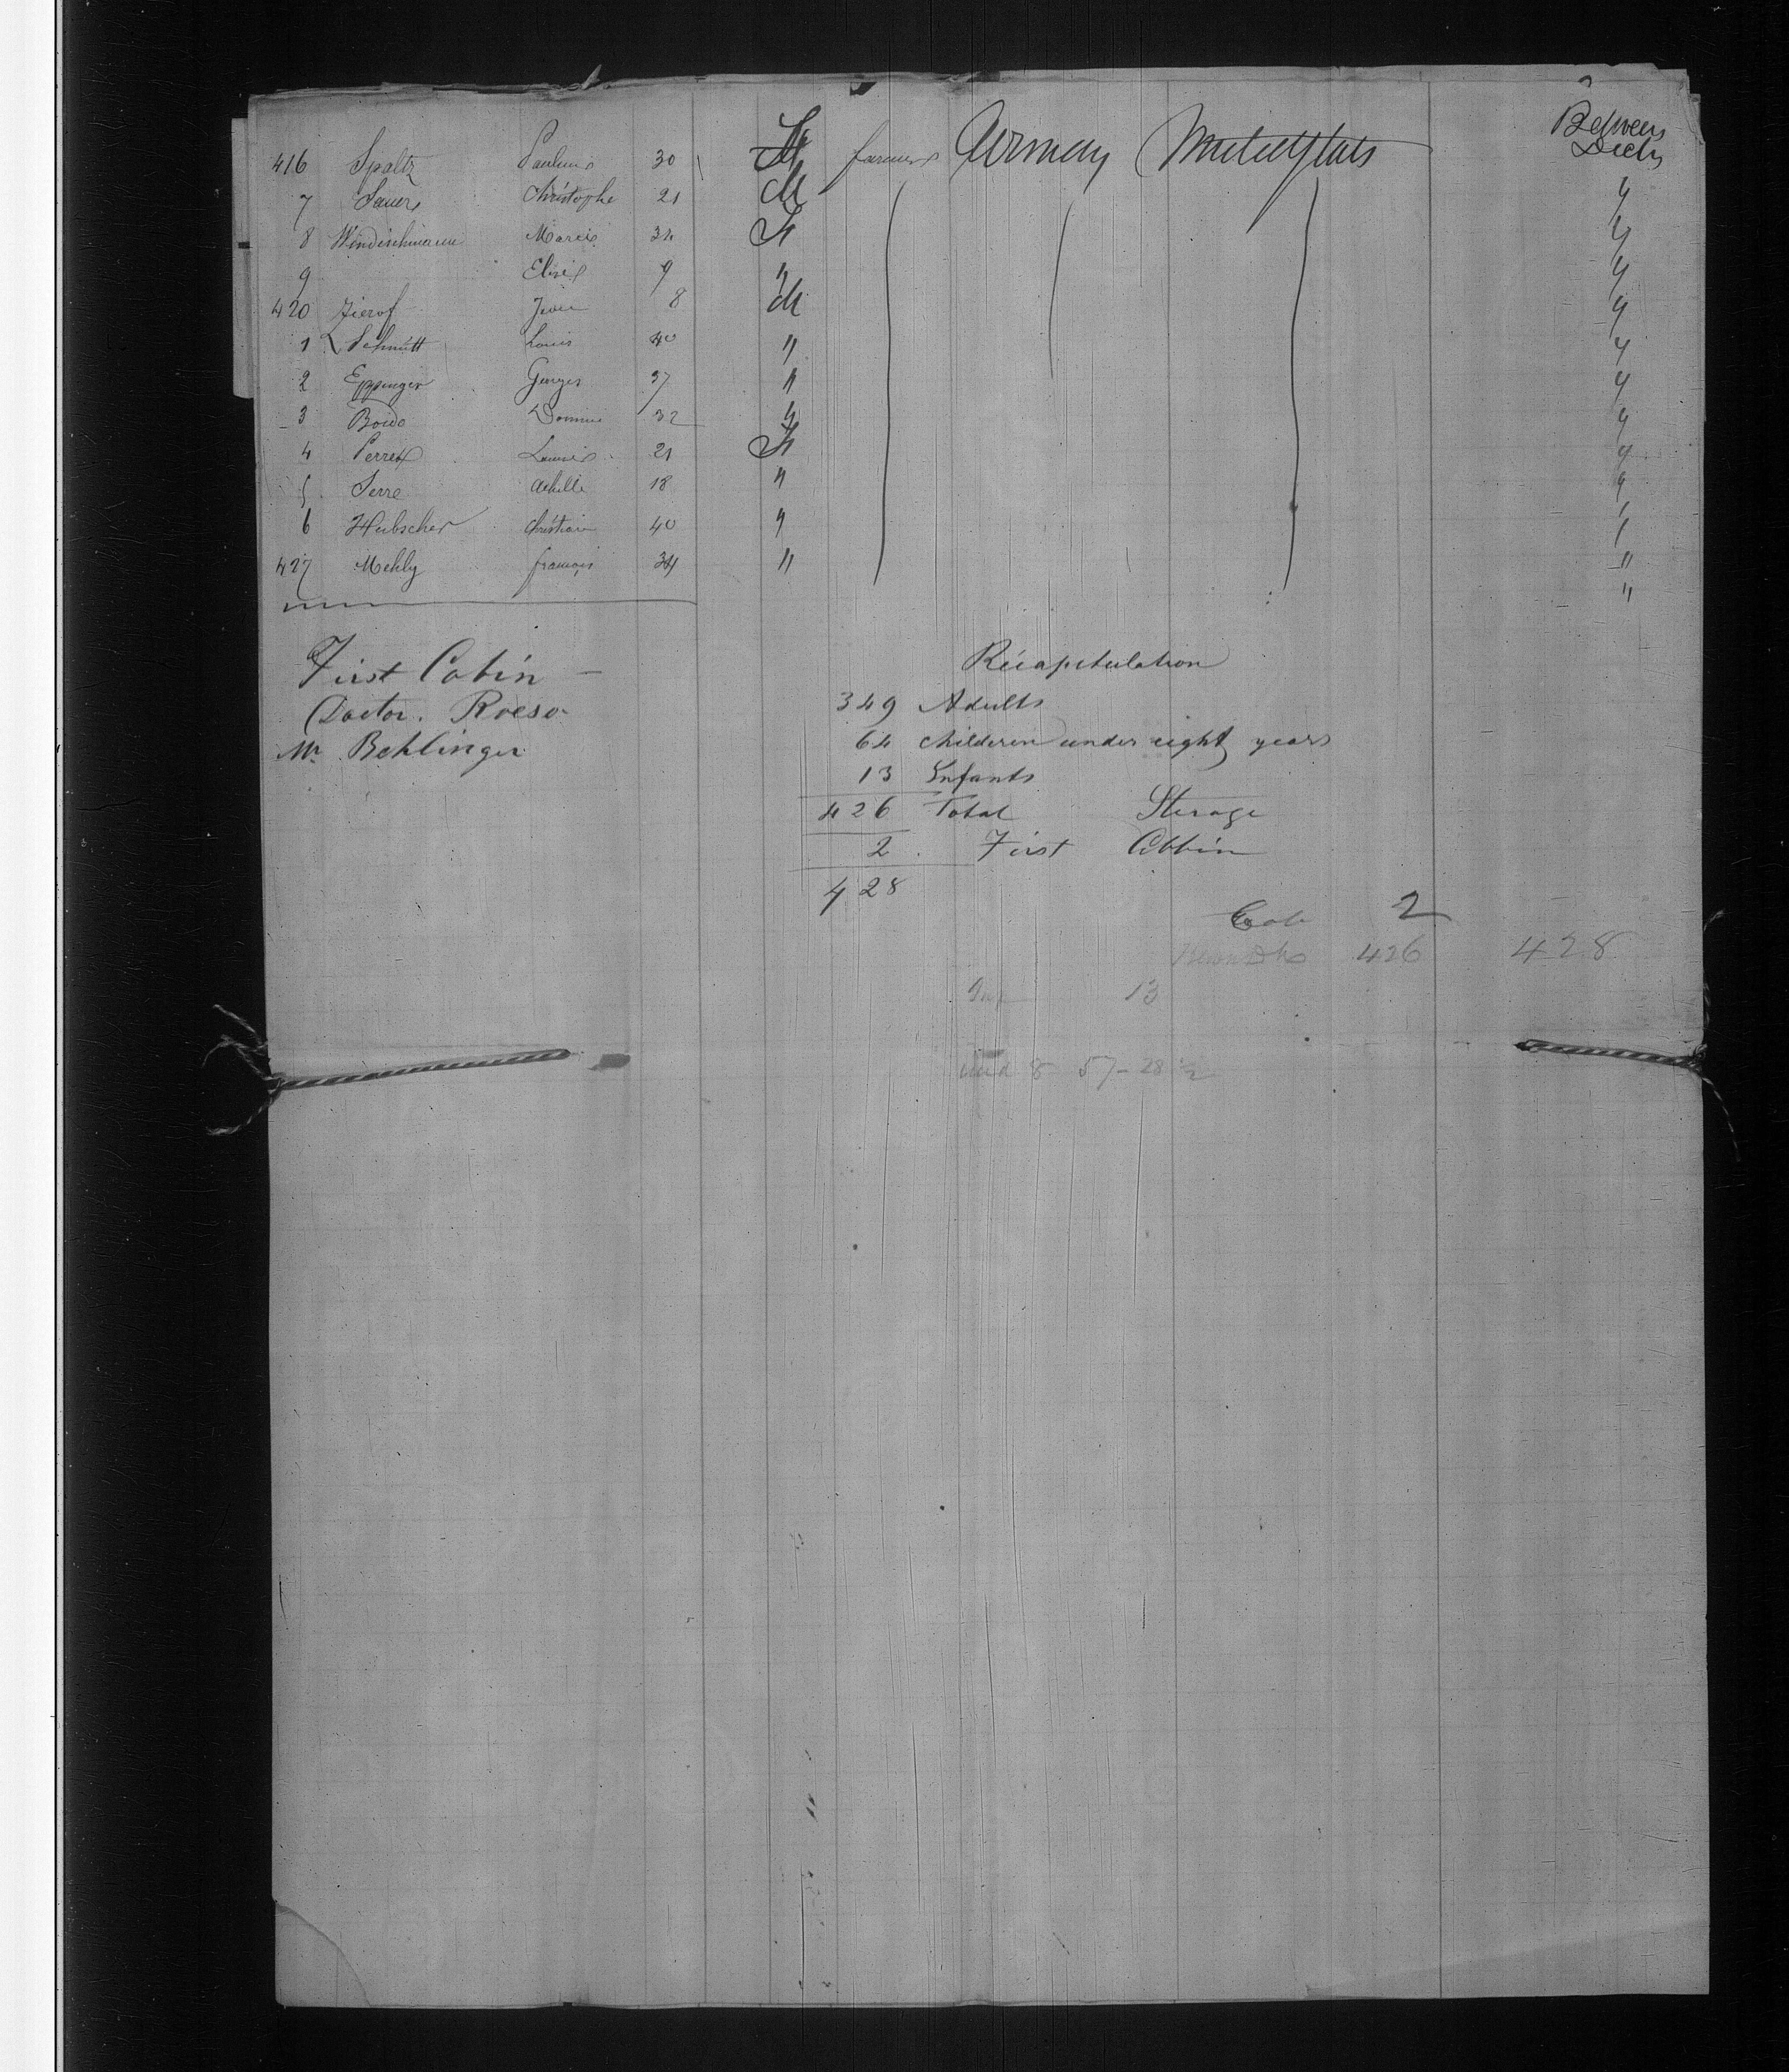 Between
Decks
416 Spaltz Pauline 30 F farmer Germany United States
7 Sauer Christophe 21 M "
8 Windischmann Marie 34 F "
9 Elise 9 " "
420 Zierof Jean 8 M "
1 Schmitt Louis 40 " "
2 Eppinger Georges 37 " "
3 Bowe 32 " "
4 Perret Louise 21 F "
5 Serre Achille 18 " "
6 Hubscher Christian 40 " "
427 Mehly françois 34 " "
"
First Cabin
Doctor. Roeser
Mr. Behlinger
Récapitulation
349 Adults
64 childeren under eight years
13 Infants
426 Total Sterage
2 First Cabbin
428
Cab 2
426 428
Inf 13
und 8 57 - 28 1/2